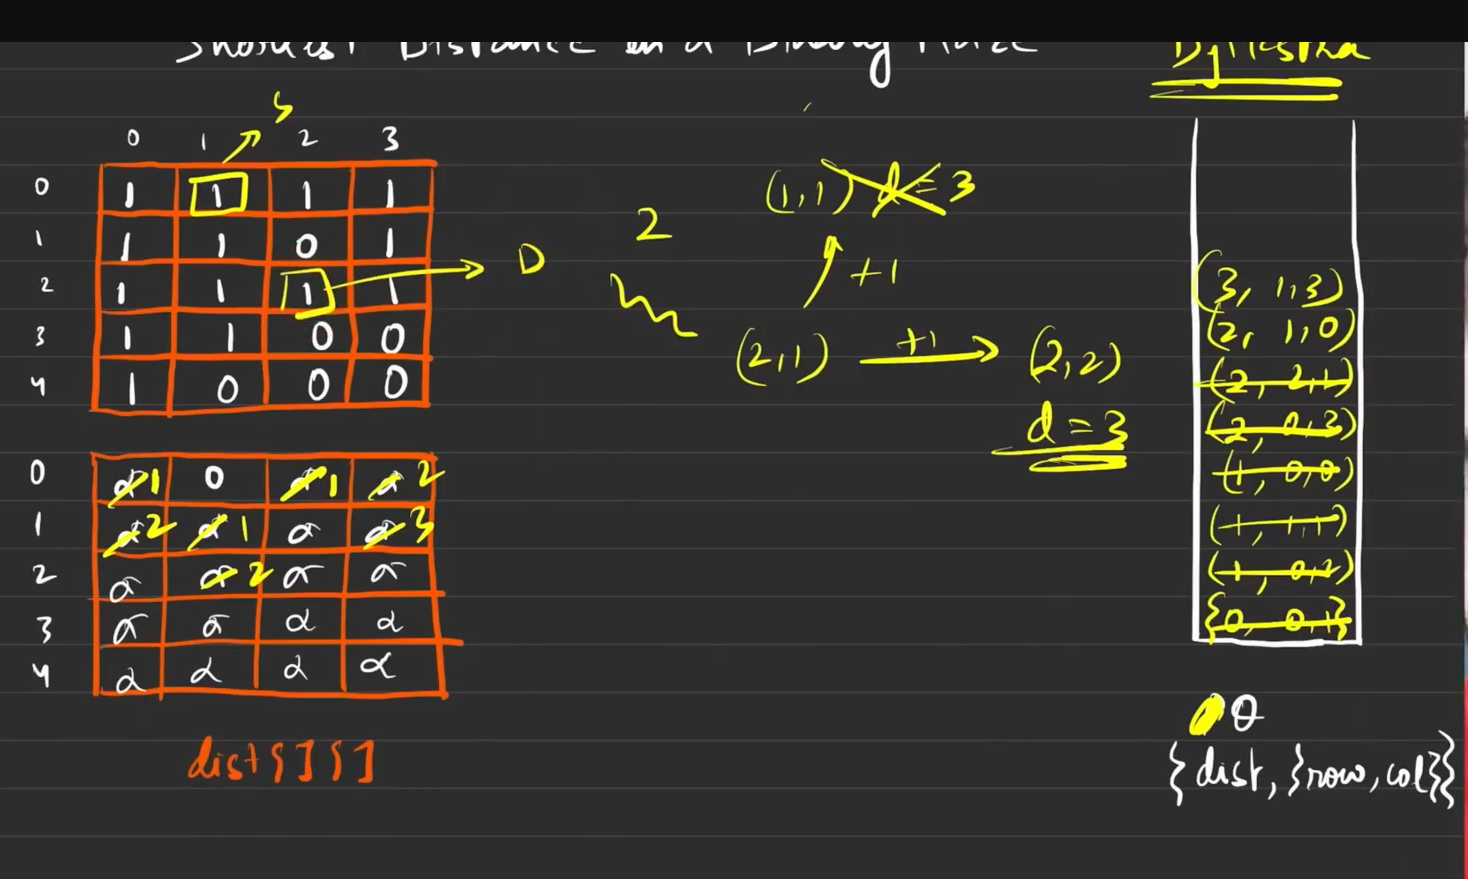 Shortest Distance in a Binary Maze
Dijkstra
S
0 1 2 3
0 1 1 1 1
1 1 1 0 1
2 1 1 1 1
3 1 1 0 0
4 1 0 0 0
D
2
(1,1) d = 3
+1
(2,1) +1 (2,2)
d = 3
0 α 1 0 α 1 α 2
1 α 2 α 1 α α 3
2 α α 2 α α
3 α α α α
4 α α α α
dist[][]
(3, 1,3)
(2, 1,0)
(2, 2,1)
(2, 0,3)
(1, 0,0)
(1, 1,1)
(1, 0,2)
{0, 0,1}
Q
{dist, {row, col}}